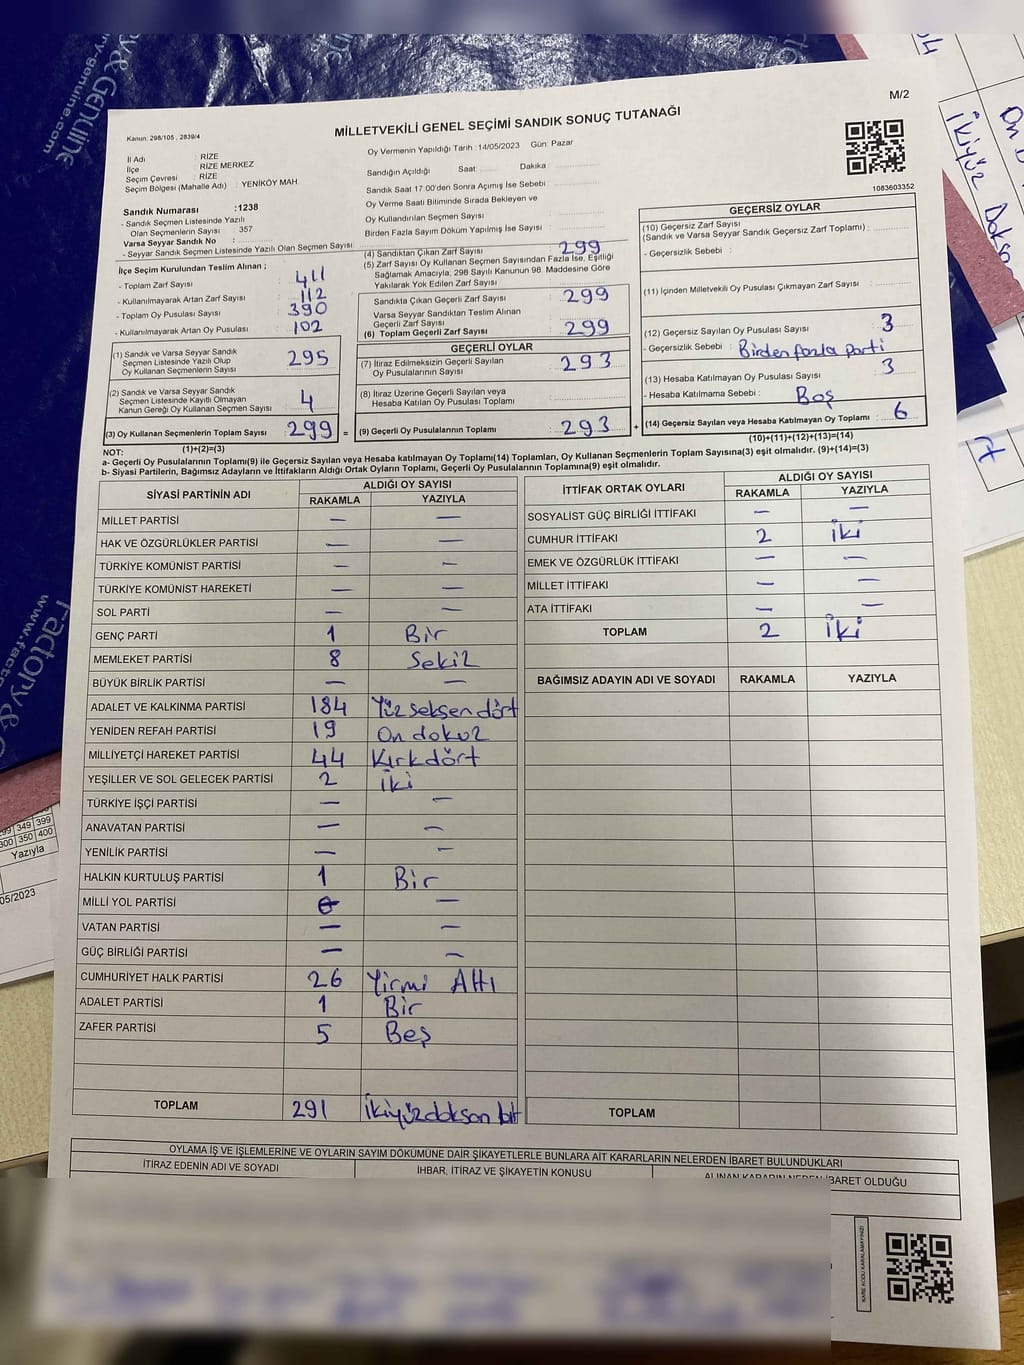 M/2
Kanun: 298/105 , 2839/4
MİLLETVEKİLİ GENEL SEÇİMİ SANDIK SONUÇ TUTANAĞI
İl Adı : RİZE
İlçe : RİZE MERKEZ
Seçim Çevresi : RİZE
Seçim Bölgesi (Mahalle Adı) : YENİKÖY MAH
Oy Vermenin Yapıldığı Tarih :14/05/2023 Gün: Pazar
Sandığın Açıldığı Saat: Dakika :
Sandık Saat 17.00'den Sonra Açımış İse Sebebi :
Oy Verme Saati Bitiminde Sırada Bekleyen ve
Oy Kullandırılan Seçmen Sayısı :
Birden Fazla Sayım Döküm Yapılmış İse Sayısı :
1083603352
Sandık Numarası :1238
- Sandık Seçmen Listesinde Yazılı
Olan Seçmenlerin Sayısı : 357
Varsa Seyyar Sandık No :
- Seyyar Sandık Seçmen Listesinde Yazılı Olan Seçmen Sayısı :
İlçe Seçim Kurulundan Teslim Alınan ;
- Toplam Zarf Sayısı : 411
- Kullanılmayarak Artan Zarf Sayısı : 112
- Toplam Oy Pusulası Sayısı : 390
- Kullanılmayarak Artan Oy Pusulası : 102
(1) Sandık ve Varsa Seyyar Sandık
Seçmen Listesinde Yazılı Olup
Oy Kullanan Seçmenlerin Sayısı : 295
(2) Sandık ve Varsa Seyyar Sandık
Seçmen Listesinde Kayıtlı Olmayan
Kanun Gereği Oy Kullanan Seçmen Sayısı : 4
(3) Oy Kullanan Seçmenlerin Toplam Sayısı : 299 =
(1)+(2)=(3)
(4) Sandıktan Çıkan Zarf Sayısı : 299
(5) Zarf Sayısı Oy Kullanan Seçmen Sayısından Fazla İse, Eşitliği
Sağlamak Amacıyla, 298 Sayılı Kanunun 98. Maddesine Göre
Yakılarak Yok Edilen Zarf Sayısı :
Sandıkta Çıkan Geçerli Zarf Sayısı : 299
Varsa Seyyar Sandıktan Teslim Alınan
Geçerli Zarf Sayısı :
(6) Toplam Geçerli Zarf Sayısı : 299
GEÇERLİ OYLAR
(7) İtiraz Edilmeksizin Geçerli Sayılan
Oy Pusulalarının Sayısı : 293
(8) İtiraz Üzerine Geçerli Sayılan veya
Hesaba Katılan Oy Pusulası Toplamı :
(9) Geçerli Oy Pusulalarının Toplamı : 293 +
GEÇERSİZ OYLAR
(10) Geçersiz Zarf Sayısı
(Sandık ve Varsa Seyyar Sandık Geçersiz Zarf Toplamı) :
- Geçersizlik Sebebi :
(11) İçinden Milletvekili Oy Pusulası Çıkmayan Zarf Sayısı :
(12) Geçersiz Sayılan Oy Pusulası Sayısı : 3
- Geçersizlik Sebebi : Birden fazla parti
(13) Hesaba Katılmayan Oy Pusulası Sayısı : 3
- Hesaba Katılmama Sebebi : Boş
(14) Geçersiz Sayılan veya Hesaba Katılmayan Oy Toplamı : 6
(10)+(11)+(12)+(13)=(14)
NOT:
a- Geçerli Oy Pusulalarının Toplamı(9) ile Geçersiz Sayılan veya Hesaba katılmayan Oy Toplamı(14) Toplamları, Oy Kullanan Seçmenlerin Toplam Sayısına(3) eşit olmalıdır. (9)+(14)=(3)
b- Siyasi Partilerin, Bağımsız Adayların ve İttifakların Aldığı Ortak Oyların Toplamı, Geçerli Oy Pusulalarının Toplamına(9) eşit olmalıdır.
SİYASİ PARTİNİN ADI ALDIĞI OY SAYISI
RAKAMLA YAZIYLA
MİLLET PARTİSİ — —
HAK VE ÖZGÜRLÜKLER PARTİSİ — —
TÜRKİYE KOMÜNİST PARTİSİ — —
TÜRKİYE KOMÜNİST HAREKETİ — —
SOL PARTİ — —
GENÇ PARTİ 1 Bir
MEMLEKET PARTİSİ 8 Sekiz
BÜYÜK BİRLİK PARTİSİ — —
ADALET VE KALKINMA PARTİSİ 184 Yüz seksen dört
YENİDEN REFAH PARTİSİ 19 On dokuz
MİLLİYETÇİ HAREKET PARTİSİ 44 Kırkdört
YEŞİLLER VE SOL GELECEK PARTİSİ 2 iki
TÜRKİYE İŞÇİ PARTİSİ — —
ANAVATAN PARTİSİ — —
YENİLİK PARTİSİ — —
HALKIN KURTULUŞ PARTİSİ 1 Bir
MİLLİ YOL PARTİSİ —
VATAN PARTİSİ — —
GÜÇ BİRLİĞİ PARTİSİ — —
CUMHURİYET HALK PARTİSİ 26 Yirmi Altı
ADALET PARTİSİ 1 Bir
ZAFER PARTİSİ 5 Beş
TOPLAM 291 ikiyüzdoksan bir
İTTİFAK ORTAK OYLARI ALDIĞI OY SAYISI
RAKAMLA YAZIYLA
SOSYALİST GÜÇ BİRLİĞİ İTTİFAKI — —
CUMHUR İTTİFAKI 2 iki
EMEK VE ÖZGÜRLÜK İTTİFAKI — —
MİLLET İTTİFAKI — —
ATA İTTİFAKI — —
TOPLAM 2 iki
BAĞIMSIZ ADAYIN ADI VE SOYADI RAKAMLA YAZIYLA
TOPLAM
OYLAMA İŞ VE İŞLEMLERİNE VE OYLARIN SAYIM DÖKÜMÜNE DAİR ŞİKAYETLERLE BUNLARA AİT KARARLARIN NELERDEN İBARET BULUNDUKLARI
İTİRAZ EDENİN ADI VE SOYADI İHBAR, İTİRAZ VE ŞİKAYETİN KONUSU ALINAN KARARIN NEDEN İBARET OLDUĞU
KARE KODU KARALAMAYINIZ!
ikiyüz Doksan
7
349 399
300 350 400
Yazıyla
05/2023